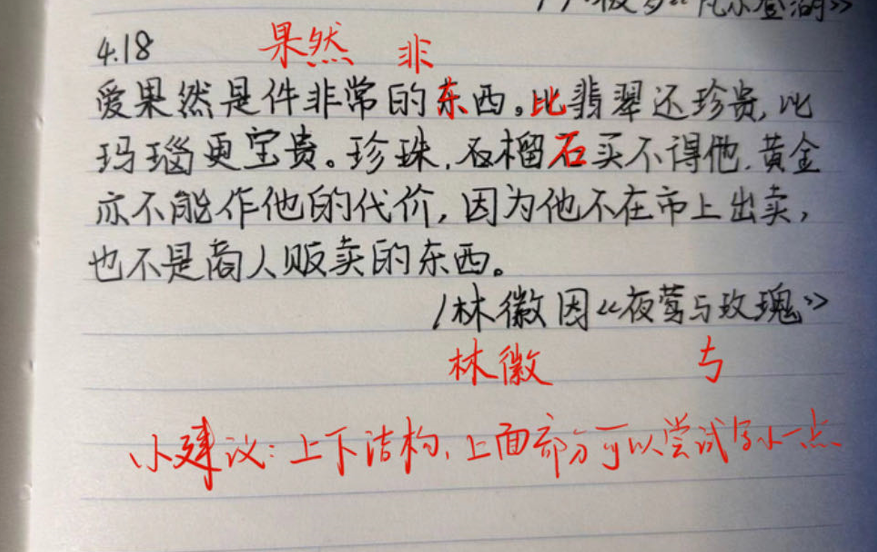 《凡尔登湖》
4.18
果然 非
爱果然是件非常的东西。比翡翠还珍贵,比
玛瑙更宝贵。珍珠、石榴石买不得他,黄金
亦不能作他的代价,因为他不在市上出卖,
也不是商人贩卖的东西。
/林徽因《夜莺与玫瑰》
林徽 与
小建议:上下结构,上面部分可以尝试写小一点